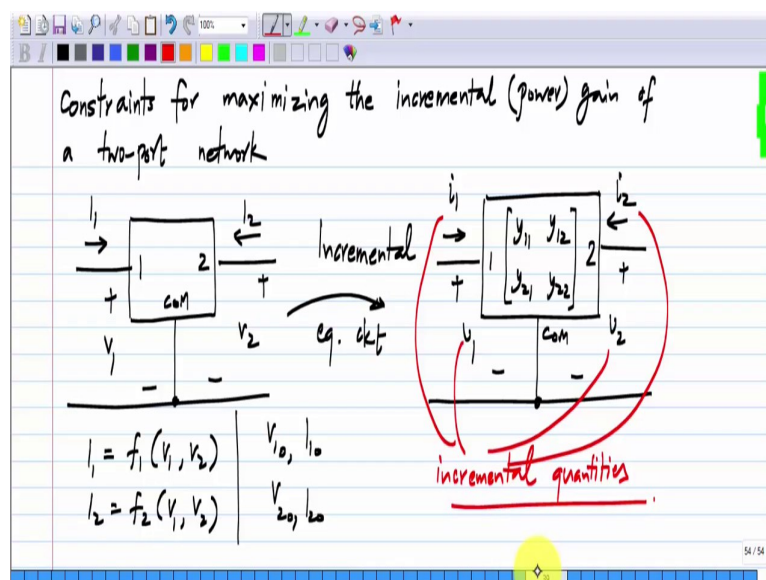 100%
B I
Constraints for maximizing the incremental (power) gain of
a two-port network
I₁ I₂
1 2
COM
+ +
V₁ V₂
- -
Incremental
eq. ckt
i₁ i₂
y₁₁ y₁₂
y₂₁ y₂₂
1 2
COM
+ +
v₁ v₂
- -
I₁ = f₁ (V₁, V₂) | V₁₀, I₁₀
I₂ = f₂ (V₁, V₂) | V₂₀, I₂₀
incremental quantities
54 / 54